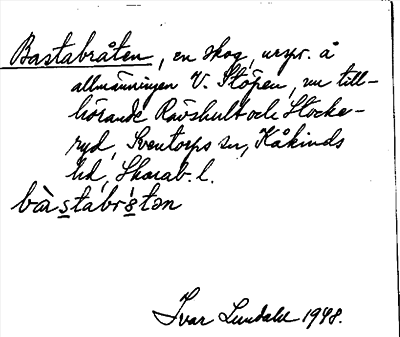 Bastabråten, en skog, urspr. å
allmänningen V. Stöpen, nu till-
hörande Rävshult och Stocke-
ryd, Sventorps sn, Kåkinds
hd, Skarab. l.
bàstabrètən
Ivar Lundahl 1948.